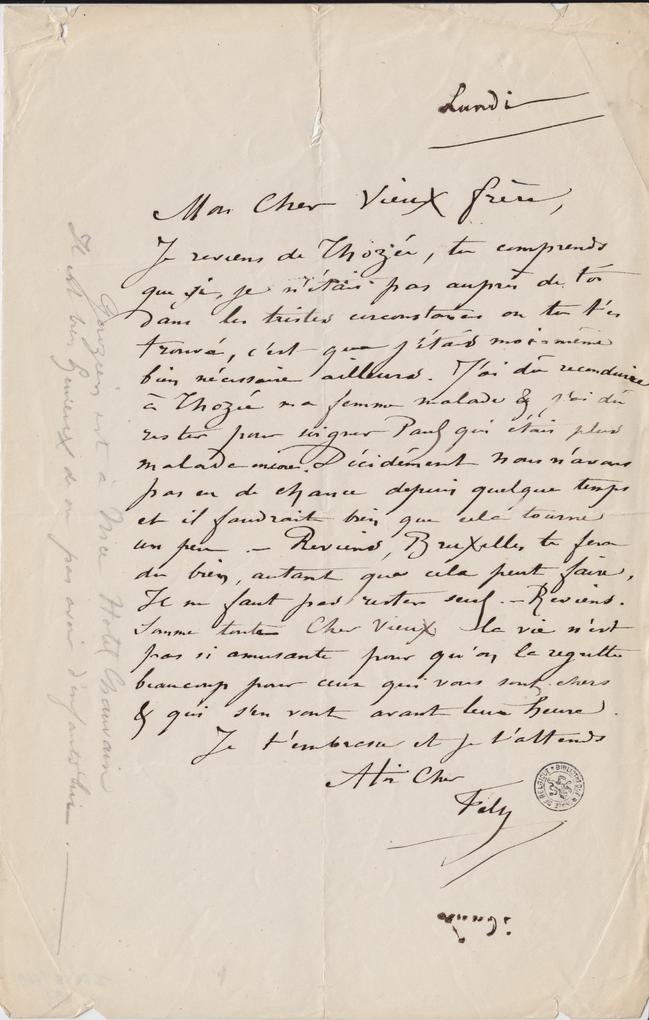 Lundi
Mon Cher Vieux frère,
Je reviens de Thozée, tu comprends
que si, je n'étais pas auprès de toi
dans les tristes circonstances ou tu t'es
trouvé, c'est que j'étais moi-même
bien nécessaire ailleurs. J'ai dû reconduire
à Thozée ma femme malade & j'ai dû
rester pour soigner Paul qui était plus
malade encore. Décidément nous n'avons
pas eu de chance depuis quelque temps
et il faudrait bien que cela tourne
un peu. – Reviens, Bruxelles te fera
du bien, autant que cela peut faire,
Il ne faut pas rester seul. – Reviens.
Somme toute Cher Vieux la vie n'est
pas si amusante pour qu'on la regrette
beaucoup pour ceux qui vous sont chers
& qui s'en vont avant leur heure.
Je t'embrasse et je t'attends
Cher
Fély
BIBLIOTHEQUE DE BELGIQUE
Gouzien est à Nice Hotel Chauvain
Il est bien d'en pas avoir